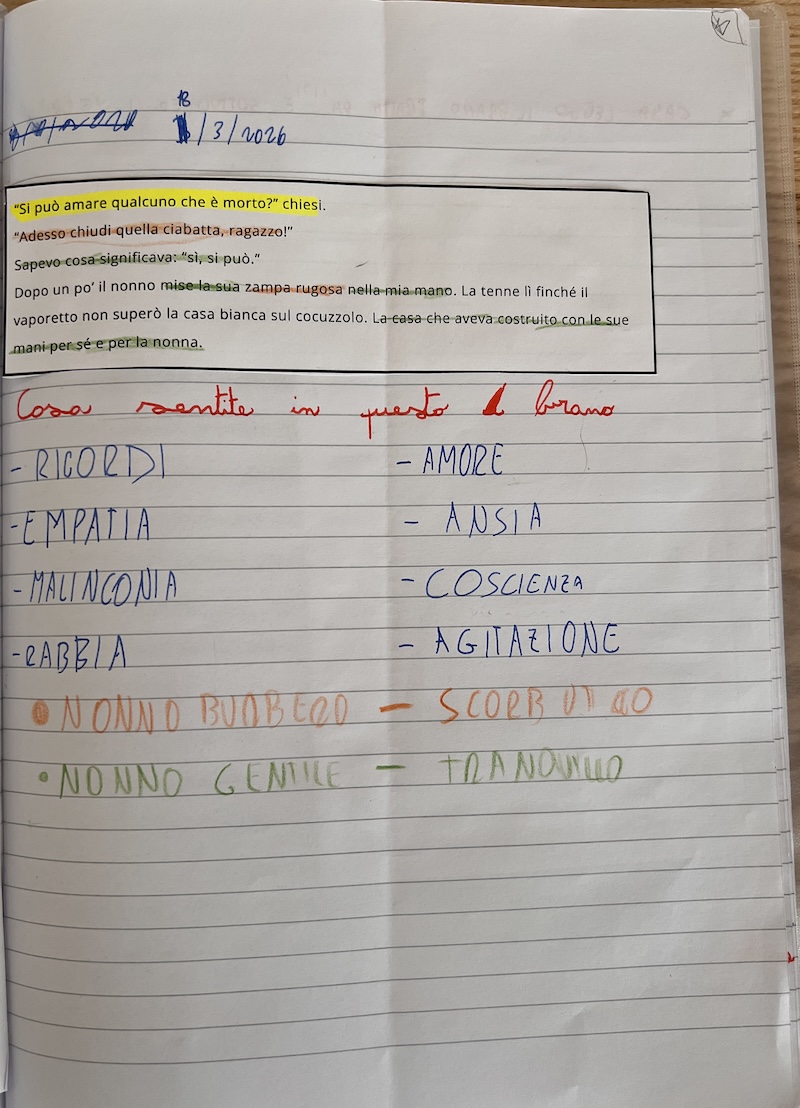 18
/3/2026
“Si può amare qualcuno che è morto?” chiesi.
“Adesso chiudi quella ciabatta, ragazzo!”
Sapevo cosa significava: “sì, si può.”
Dopo un po’ il nonno mise la sua zampa rugosa nella mia mano. La tenne lì finché il
vaporetto non superò la casa bianca sul cocuzzolo. La casa che aveva costruito con le sue
mani per sé e per la nonna.
Cosa sentite in questo brano
- RICORDI - AMORE
- EMPATIA - ANSIA
- MALINCONIA - COSCIENZA
- RABBIA - AGITAZIONE
• NONNO BURBERO - SCORBUTICO
• NONNO GENTILE - TRANQUILLO